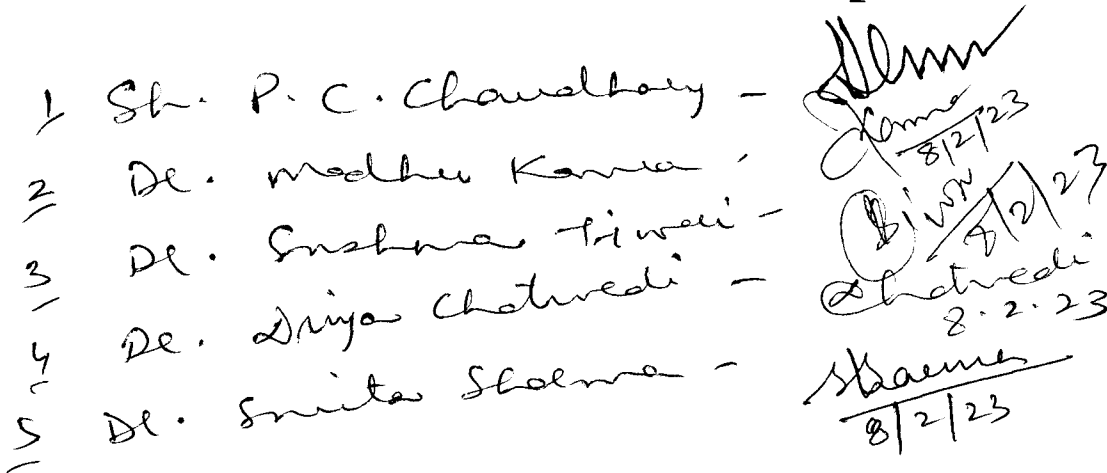 1 Sh. P. C. Chaudhary -
2 Dr. Madhu Kamra - 8/2/23
3 Dr. Sushma Tiwari - 8/2/23
4 Dr. Divya Chaturvedi - Chaturvedi 8.2.23
5 Dr. Smita Sharma - SSharma 8/2/23